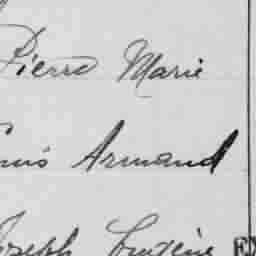 Pierre Marie
Armand
Joseph Eugène